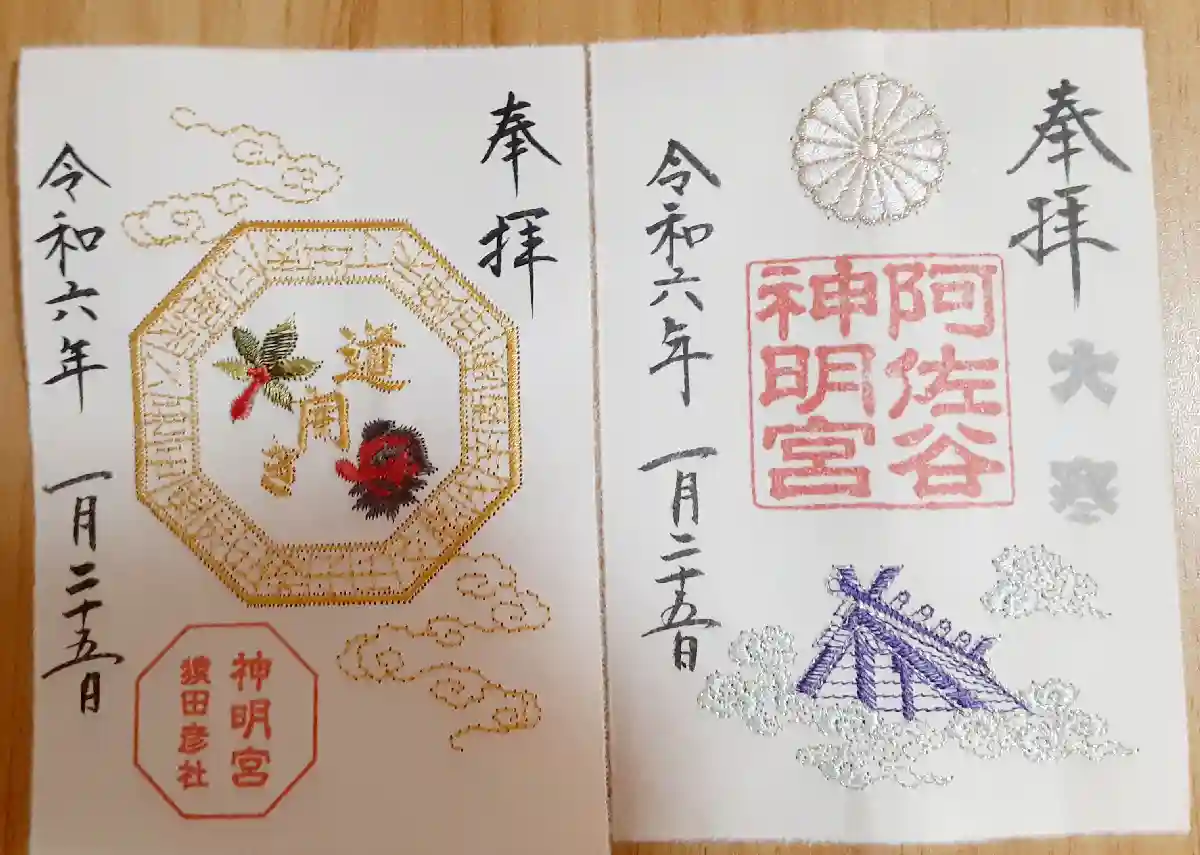 奉拝
道開き
神明宮
猿田彦社
令和六年 一月二十五日
奉拝
大寒
阿佐谷
神明宮
令和六年 一月二十五日